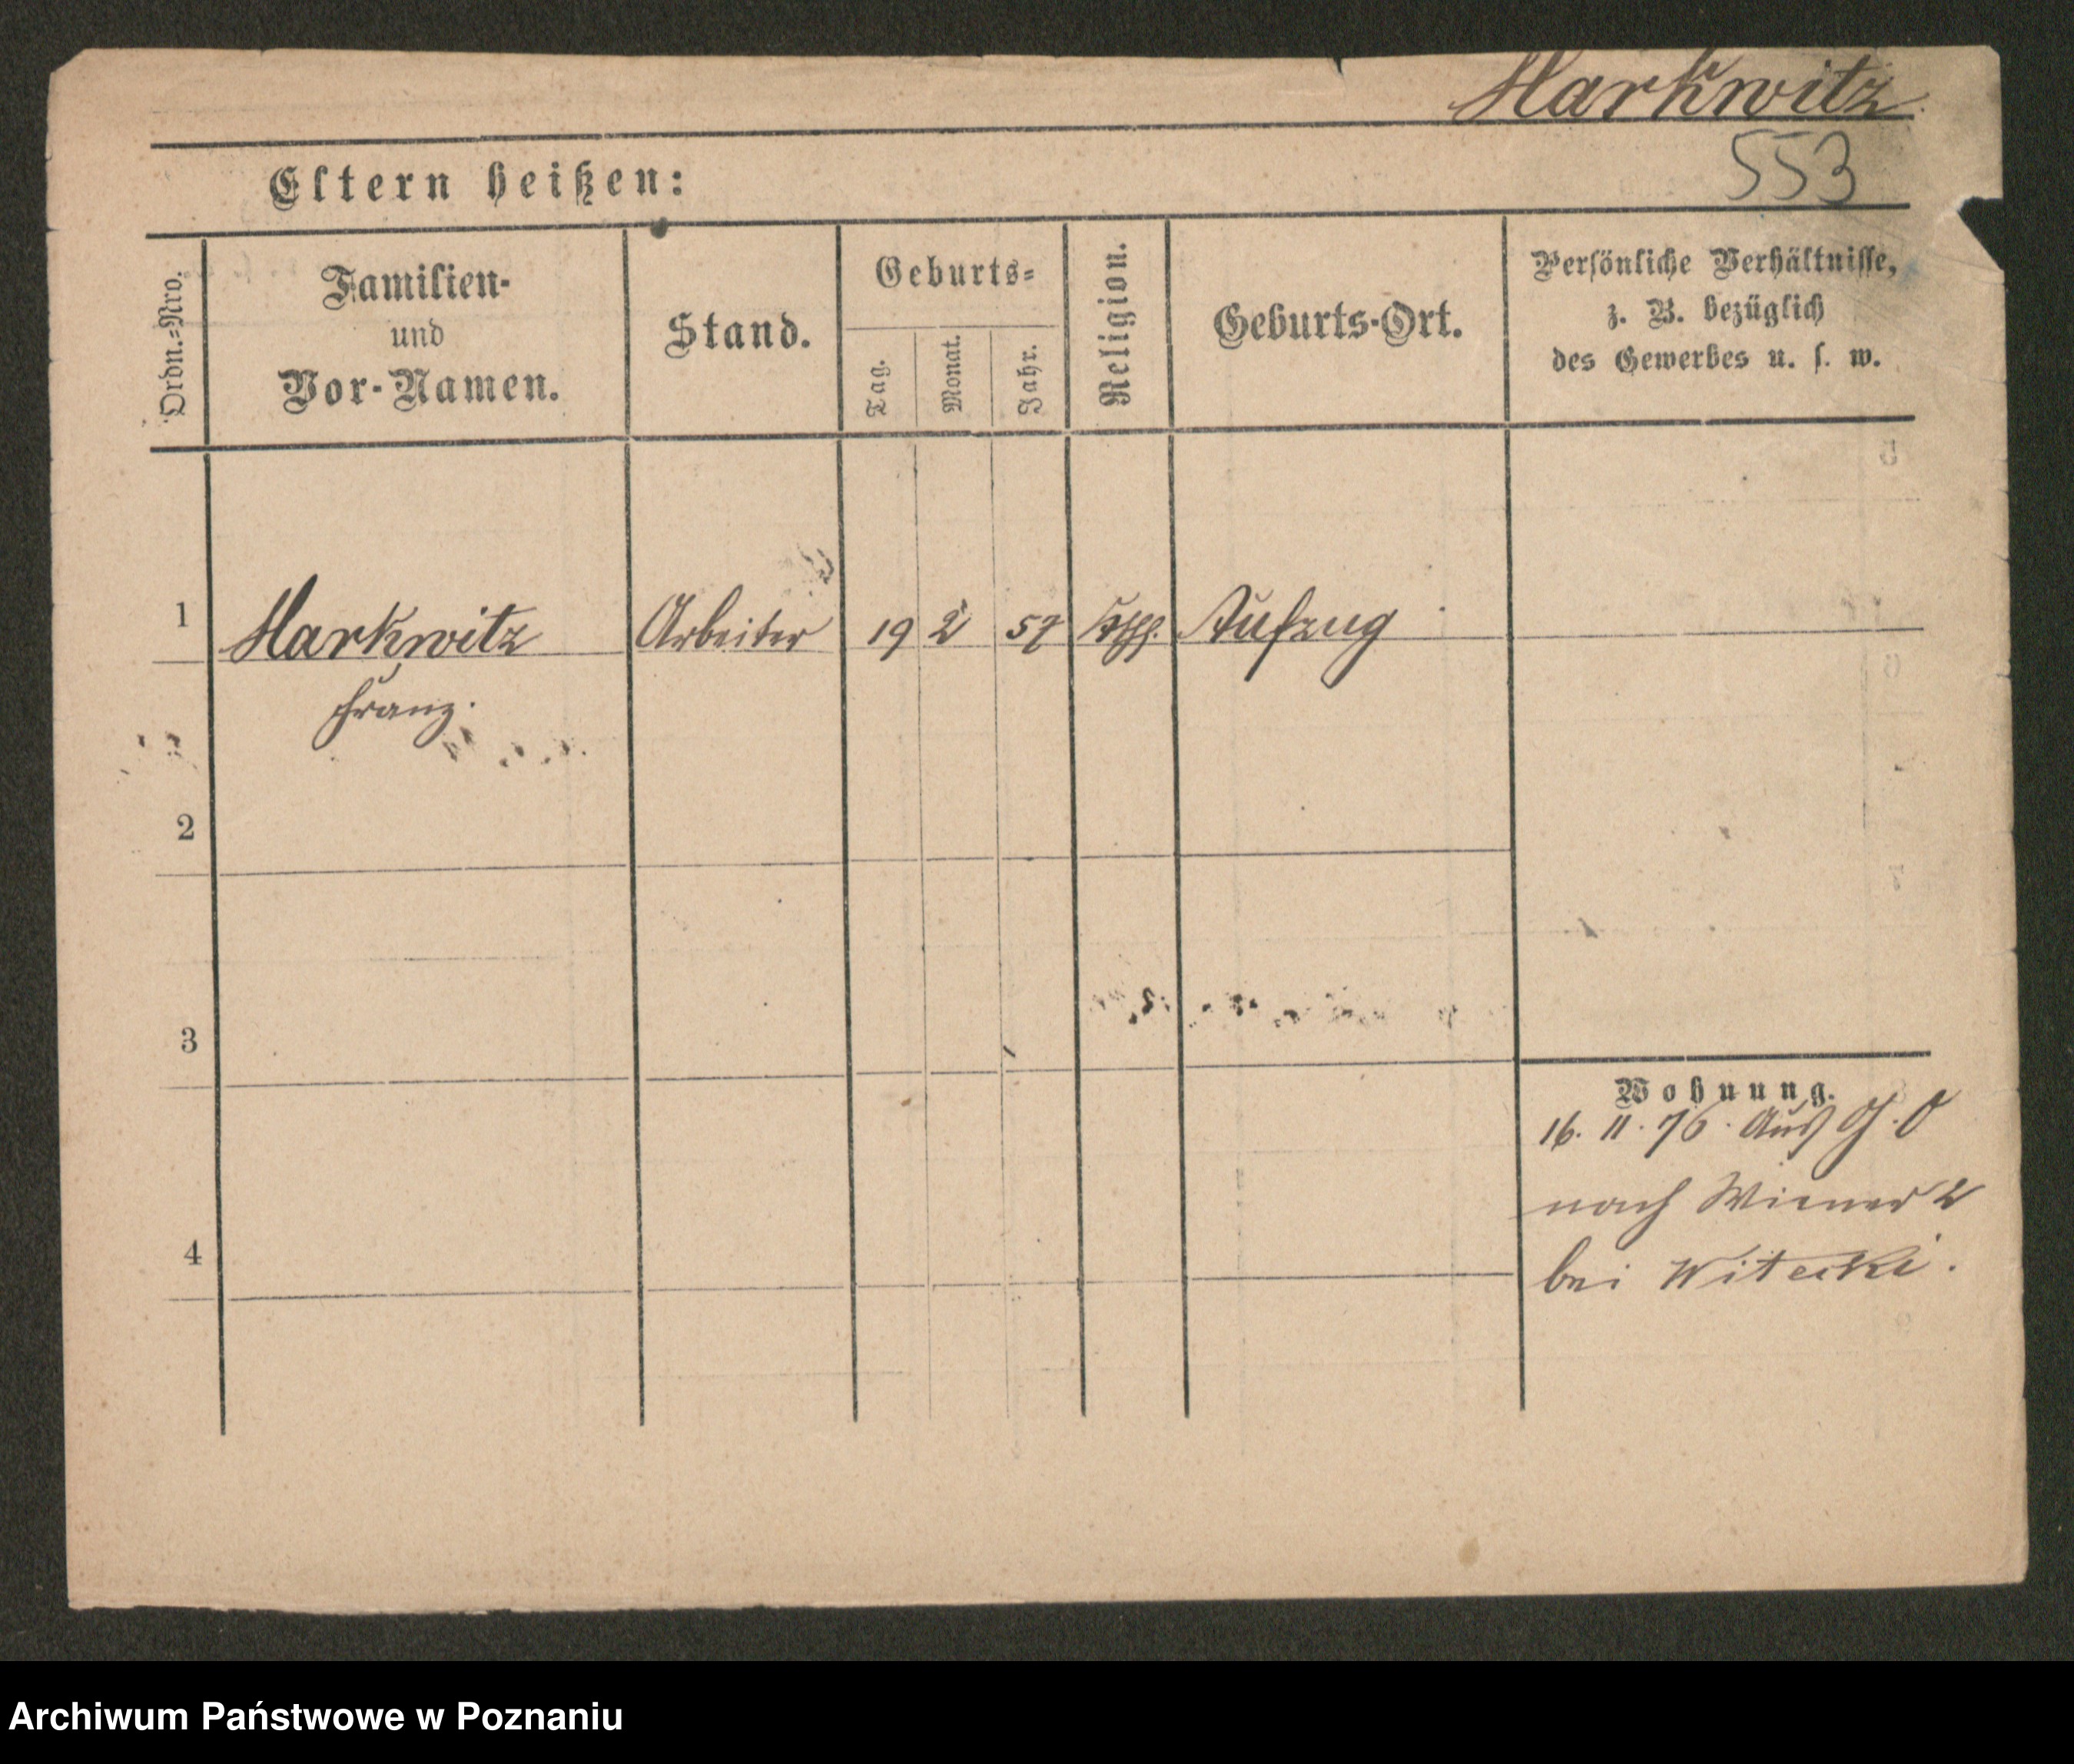 Markwitz.
553
Eltern heißen:
Ordn.=Nro.
Familien-
und
Vor-Namen.
Stand.
Geburts=
Tag.
Monat.
Jahr.
Religion.
Geburts-Ort.
Persönliche Verhältnisse,
z. B. bezüglich
des Gewerbes u. s. w.
1 Markwitz Arbeiter 19 2 57 Kth. Aufzug
Franz.
2
3
Wohnung.
16. 11. 76. Aus G. O
nach Wiener 2
4
bei Witecki.
Archiwum Państwowe w Poznaniu